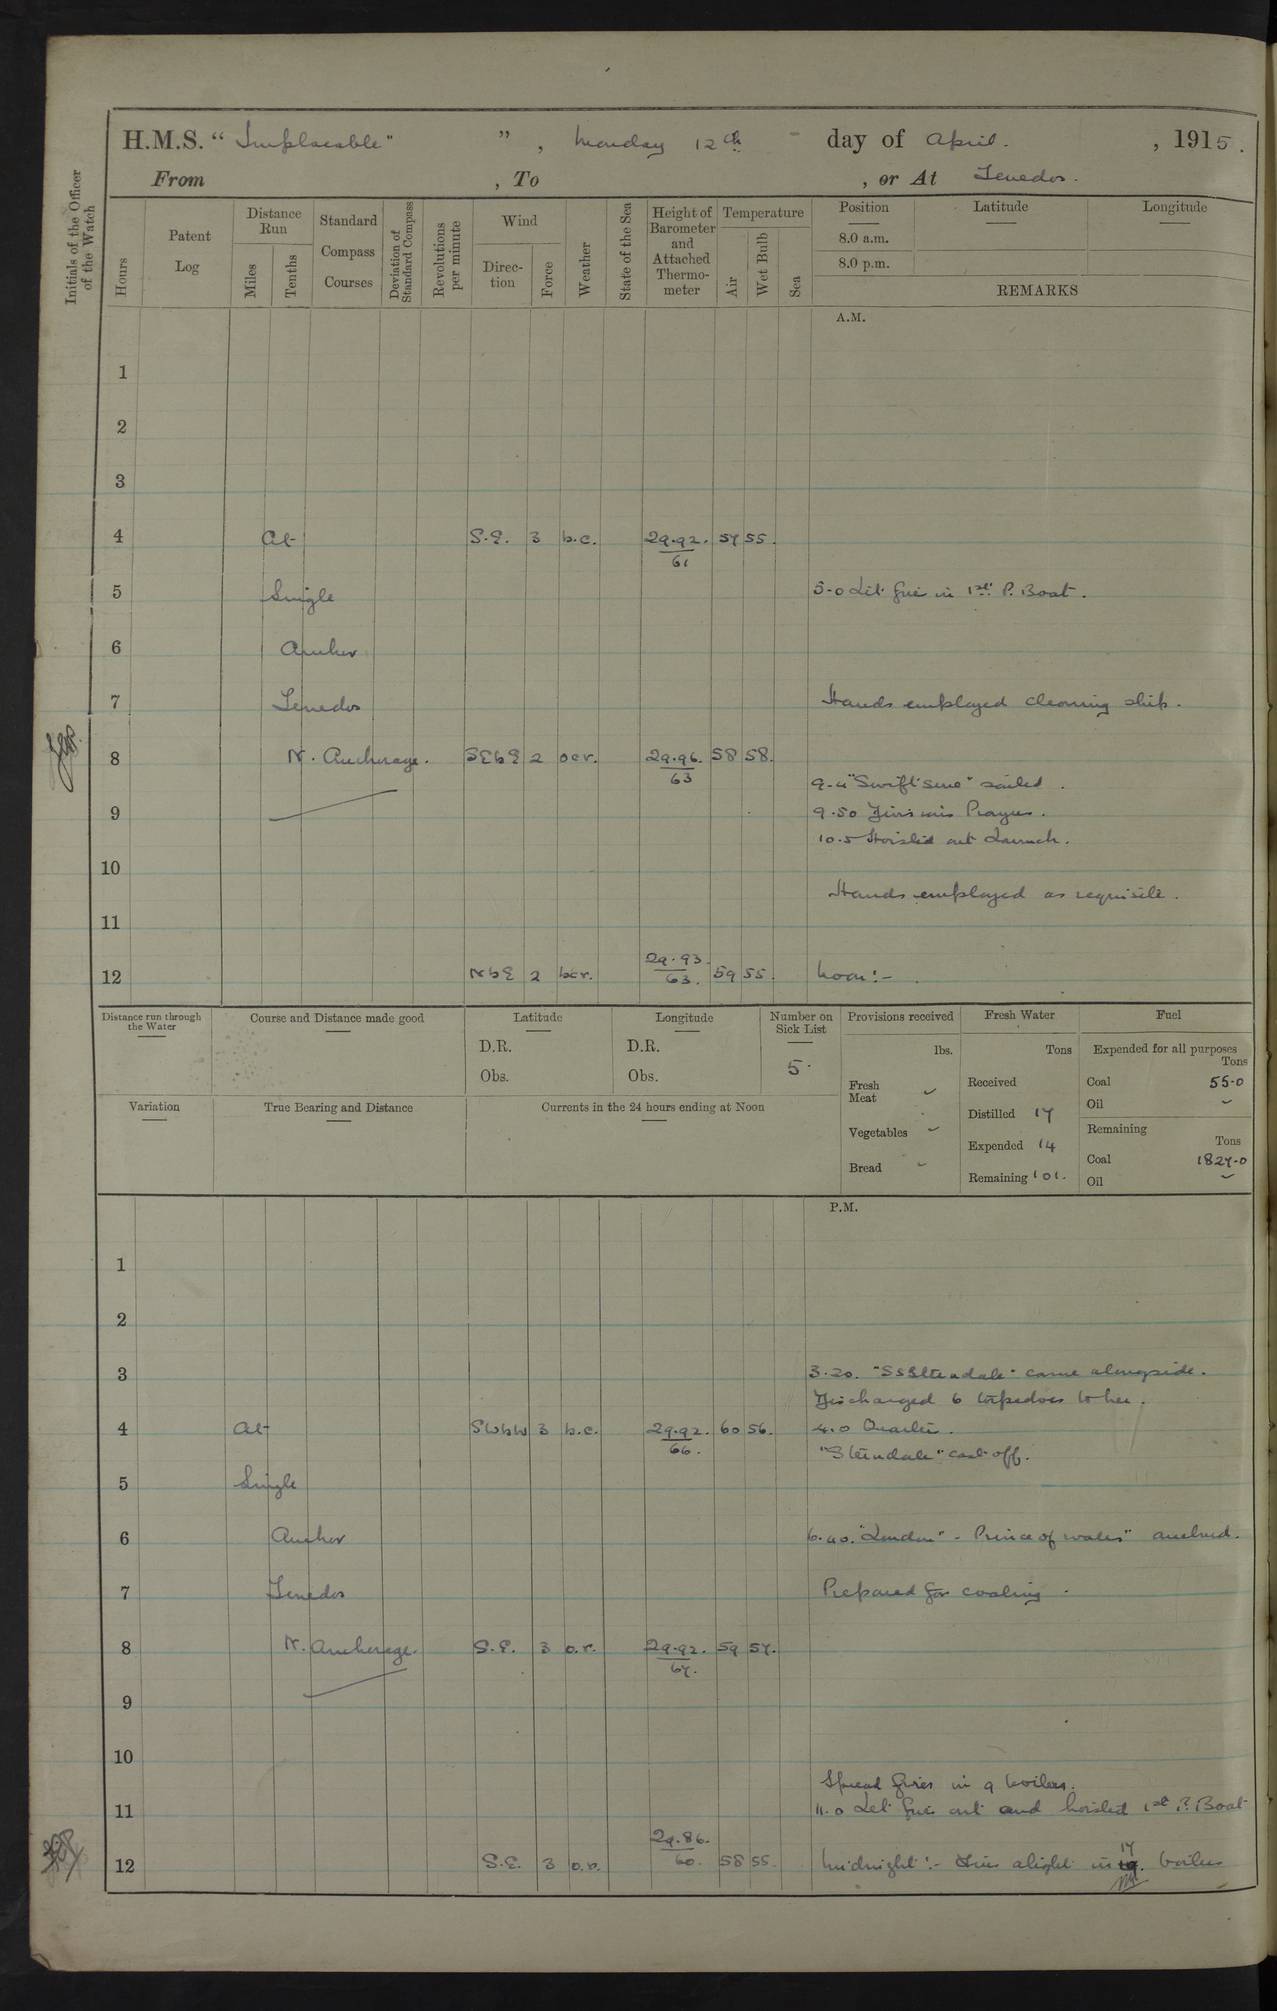 H.M.S. “ Implacable" ” , Monday 12th day of April. , 1915.
From , To , or At Tenedos.
Initials of the Officer of the Watch
Hours
Patent Log
Distance Run
Miles
Tenths
Standard Compass Courses
Deviation of Standard Compass
Revolutions per minute
Wind
Direction
Force
Weather
State of the Sea
Height of Barometer and Attached Thermometer
Temperature
Air
Wet Bulb
Sea
Position Latitude Longitude
8.0 a.m.
8.0 p.m.
REMARKS
A.M.
1
2
3
4 At S.E. 3 b.c. 29.92. 57 55.
61
5 Single 5-0 Lit fire in 1st P. Boat.
6 Anchor
7 Tenedos Hands employed cleaning ship.
8 N. Anchorage. SEbE 2 ocr. 29.96. 58 58.
63
9-4 "Swiftsure" sailed.
9 9.50 Divisions Prayers.
10.5 Hoisted out Launch.
10
Hands employed as requisite.
11
12 NbE 2 bcr. 29.93. 59 55. Noon:-
63.
Distance run through the Water
Course and Distance made good
Latitude
D.R.
Obs.
Longitude
D.R.
Obs.
Number on Sick List
5.
Provisions received
lbs.
Fresh Meat
Vegetables
Bread
Fresh Water
Tons
Received
Distilled 17
Expended 14
Remaining 101.
Fuel
Expended for all purposes
Tons
Coal 55.0
Oil
Remaining
Tons
Coal 1827.0
Oil
Variation
True Bearing and Distance
Currents in the 24 hours ending at Noon
P.M.
1
2
3 3.20. "SS Steindale" came alongside.
Discharged 6 torpedoes to her.
4 At SWbW 3 b.c. 29.92. 60 56. 4.0 Quarters.
66.
"Steindale" cast off.
5 Single
6 Anchor 6.40. "London" - Prince of Wales" anchored.
7 Tenedos Prepared for coaling.
8 N. Anchorage. S.E. 3 o.r. 29.92. 59 57.
67.
9
10
Spread fires in 9 boilers.
11 11.0 Let fires out and hoisted 1st P. Boat
12 S.E. 3 o.r. 29.86. 58 55. Midnight:- Fires alight in 17 boilers
60.